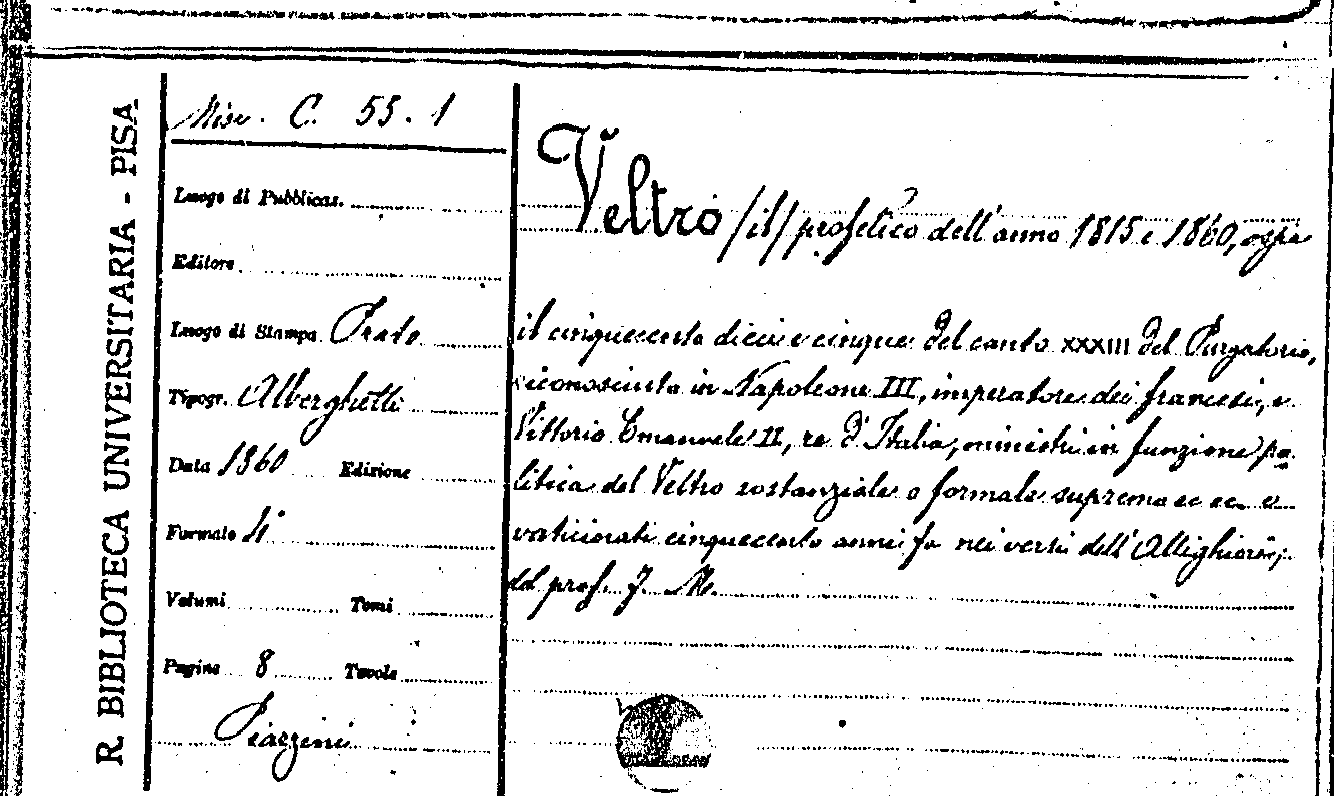 R. BIBLIOTECA UNIVERSITARIA - PISA
Misc. C. 55. 1
Luogo di Pubblicaz.
Editore
Luogo di Stampa Prato
Tipogr. Alberghetti
Data 1860 Edizione
Formato 4°
Volumi Tomi
Pagine 8 Tavole
Piazzini
Veltro /il/ profetico dell'anno 1815 e 1860, ossia
il cinquecento dieci e cinque del canto XXXIII del Purgatorio,
riconosciuto in Napoleone III, imperatore dei francesi, e
Vittorio Emanuele II, re d'Italia, ministri in funzione po-
litica del Veltro sostanziale o formale supremo ec ec. e
vaticinati cinquecento anni fa nei versi dell'Allighieri;
del prof. J. M.